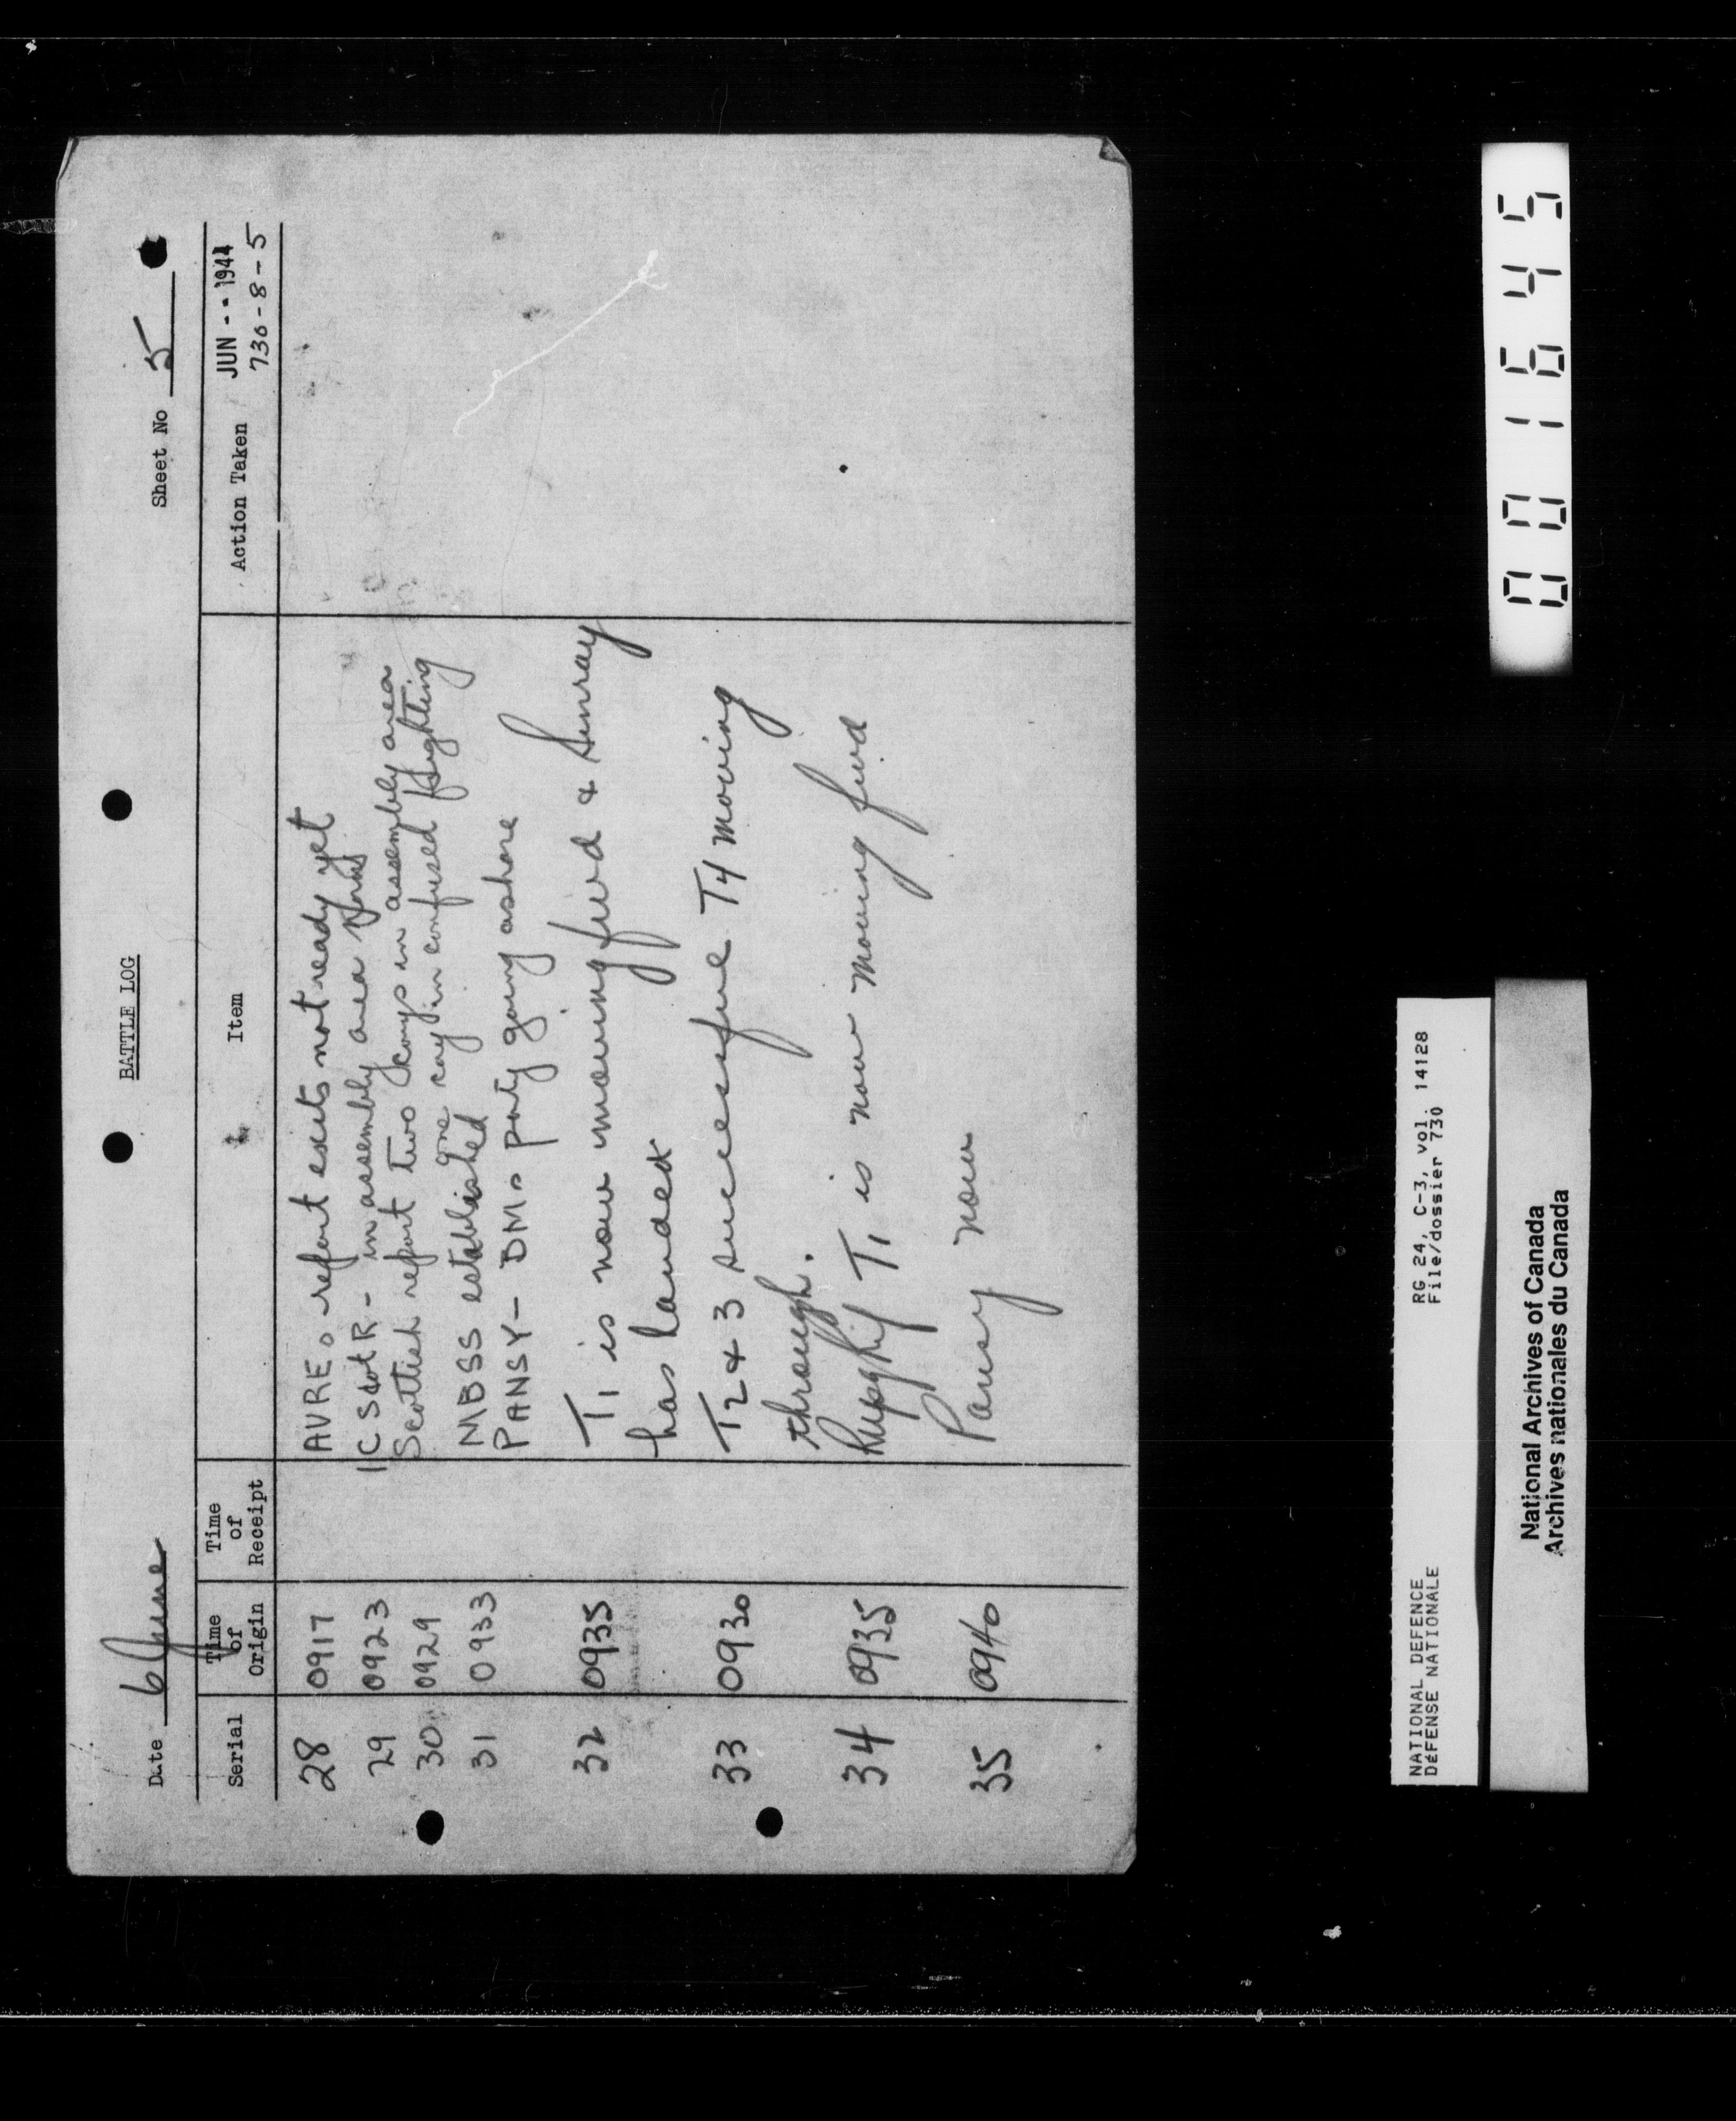 BATTLE LOG
Date 6 June
Sheet No 5
Serial
Time of Origin
Time of Receipt
Item
Action Taken
JUN -- 1944
730-8-5
28 0917 AVREs report exits not ready yet
29 0923 1 C Scot R - in assembly area
30 0929 Scottish report two coys in assembly area
one coy in confused fighting
31 0933 MBSS established
PANSY - DMs party going ashore
32 0935 T1 is now moving fwd & Sunray
has landed
33 0930 T2 & 3 successful T4 moving
through.
34 0935 T1 is now moving fwd
35 0940 Pansy now
0001645
NATIONAL DEFENCE
DéFENSE NATIONALE
RG 24, C-3, vol. 14128
File/dossier 730
National Archives of Canada
Archives nationales du Canada